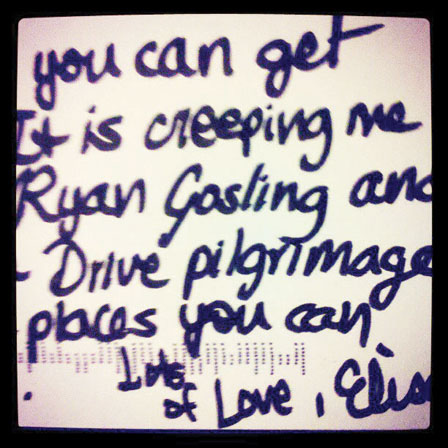 you can get
It is creeping me
Ryan Gosling and
- Drive pilgrimage
places you can
Lots
of Love, Elise